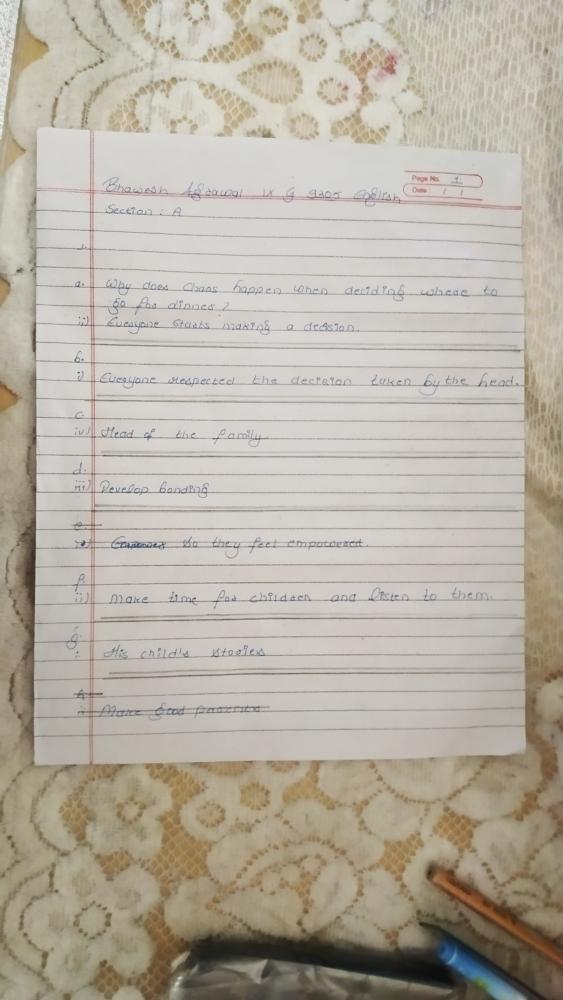 Page No. 1
Date / /
Bhawesh Agrawal IX G 9305 English
Section : A
1.
a. Why does chaos happen when deciding where to
go for dinner ?
ii) Everyone starts making a decision.
b.
i) Everyone respected the decision taken by the head.
c.
iv) Head of the family
d.
iii) Develop bonding
e.
so they feel empowered.
f.
ii) Make time for children and listen to them.
g.
i His child's stories
h
i Make good parents